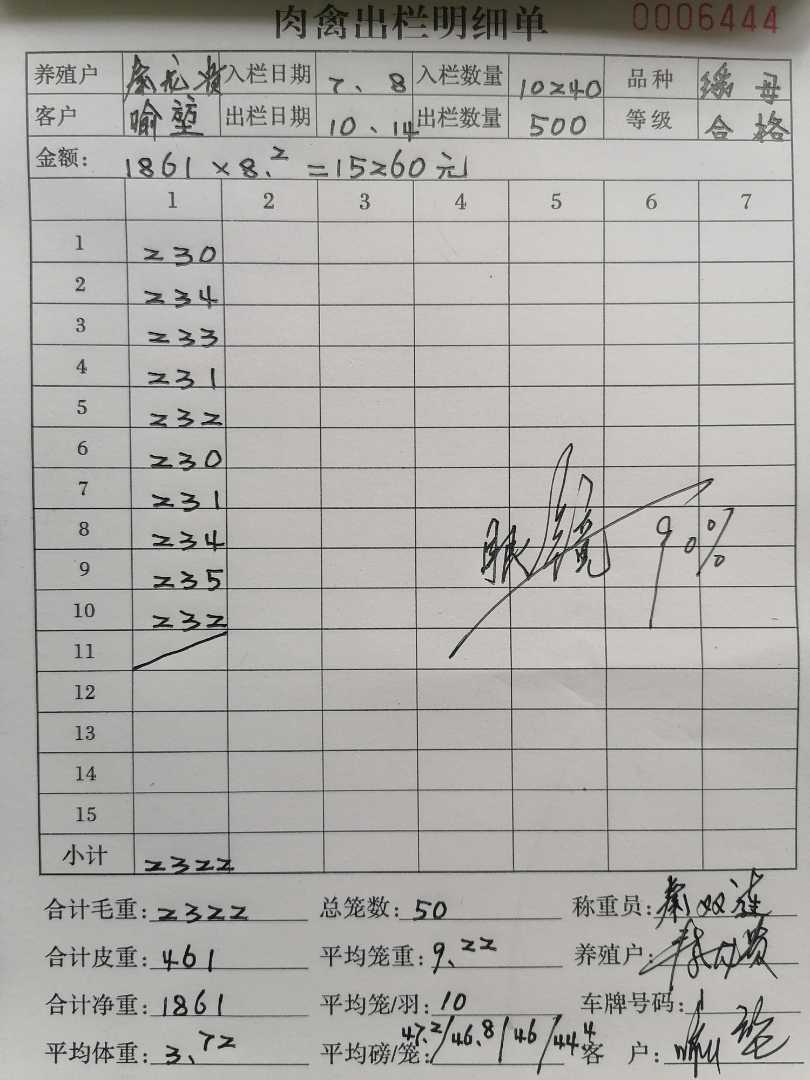 肉禽出栏明细单 0006444
养殖户 秦龙 入栏日期 7、8 入栏数量 10240 品种 母
客户 喻 出栏日期 10、14 出栏数量 500 等级 合格
金额: 1861×8.2=15260元
1 2 3 4 5 6 7
1 230
2 234
3 233
4 231
5 232
6 230
7 231
8 234
眼镜 90%
9 235
10 232
11
12
13
14
15
小计 2322
合计毛重: 2322 总笼数: 50 称重员: 秦双
合计皮重: 461 平均笼重: 9.22 养殖户:
合计净重: 1861 平均笼/羽: 10 车牌号码:
平均体重: 3.72 平均磅/笼: 47.2/46.8/46/44.4 客户: